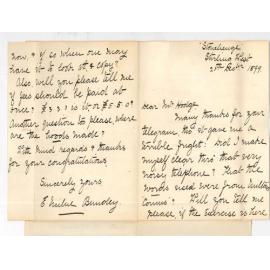 Stonehenge,
Stirling West
29th Decr 1899.
Dear Mr Hodge
Many thanks for your
telegram, tho it gave me a
terrible fright! Did I make
myself clear thro that very
noisy telephone? That the
words used were from Milton's
Comus? Will you tell me
please, if the exercise is here
now, & if so when one may
have it to look at & copy?
Also will you please tell me
if fees should be paid at
once? £3.3. is it or £5.5.0?
Another question is please where
are the hoods made?
With kind regards & thanks
for your congratulations
Sincerely yours
E Milne Bundey